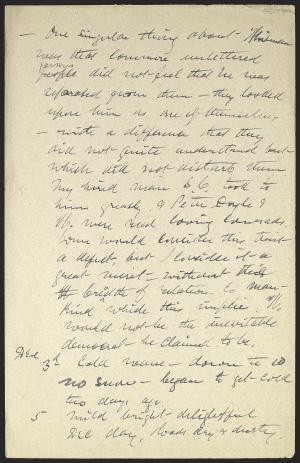 — One singular thing about Whitman
was that common unlettered
persons
people did not feel that he was
separated from them – they looked
upon him as one of themselves
– with a difference that they
did not quite understand but
which did not disturb them
My hired man S. C. took to
him greatly, & Peter Doyle &
W. were real loving comrads.
Some would consider this trait
a defect, but I consider it a
great merit – without the
breadth of relation to man-
kind which this implies W.
would not be the inevitable
democrat he claimed to be.
Dec 3d Cold wave – down to 10
no snow – began to get cold
two days ago.
5 Mild bright delightful
Dec day, roads dry & dusty.